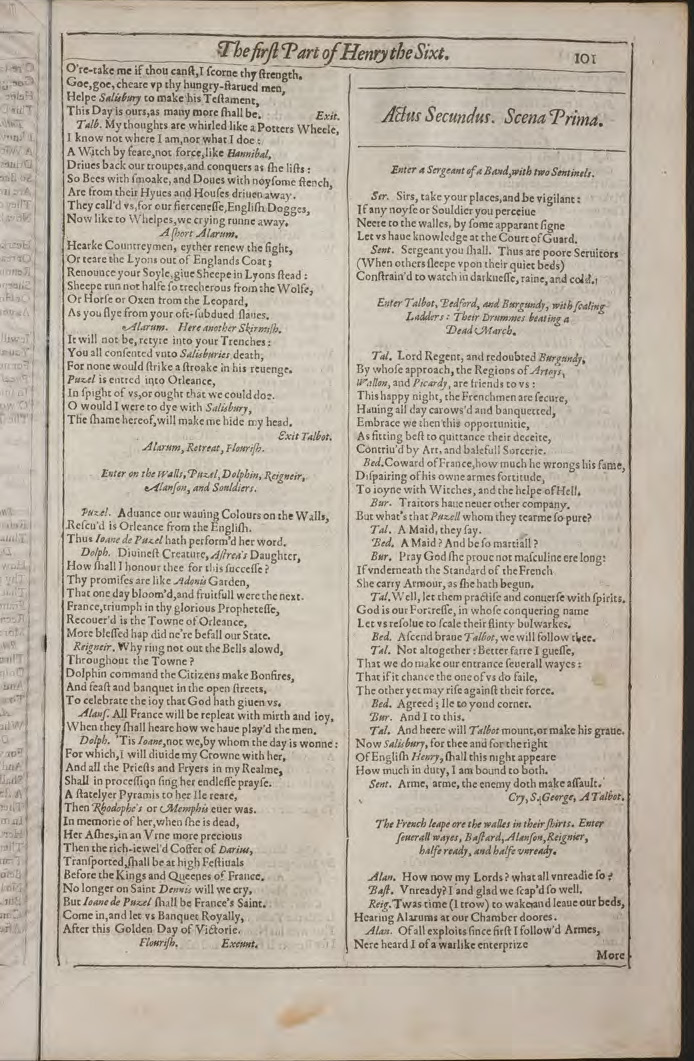 The firſt Part of Henry the Sixt.
101
O're-take me if thou canſt, I ſcorne thy ſtrength.
Goe, goe, cheare vp thy hungry-ſtarued men,
Helpe Salisbury to make his Teſtament,
This Day is ours, as many more ſhall be. Exit.
Talb. My thoughts are whirled like a Potters Wheele,
I know not where I am, nor what I doe:
A Witch by feare, not force, like Hannibal,
Driues back our troupes, and conquers as ſhe liſts:
So Bees with ſmoake, and Doues with noyſome ſtench,
Are from their Hyues and Houſes driuen away.
They call'd vs, for our fierceneſſe, Engliſh Dogges,
Now like to Whelpes, we crying runne away.
A ſhort Alarum.
Hearke Countreymen, eyther renew the fight,
Or teare the Lyons out of Englands Coat;
Renounce your Soyle, giue Sheepe in Lyons ſtead:
Sheepe run not halfe ſo trecherous from the Wolfe,
Or Horſe or Oxen from the Leopard,
As you flye from your oft-ſubdued ſlaues.
Alarum. Here another Skirmiſh.
It will not be, retyre into your Trenches:
You all conſented vnto Salisburies death,
For none would ſtrike a ſtroake in his reuenge.
Puzel is entred into Orleance,
In ſpight of vs, or ought that we could doe.
O would I were to dye with Salisbury,
The ſhame hereof, will make me hide my head.
Exit Talbot.
Alarum, Retreat, Flouriſh.
Enter on the Walls, Puzel, Dolphin, Reigneir,
Alanſon, and Souldiers.
Puzel. Aduance our wauing Colours on the Walls,
Reſcu'd is Orleance from the Engliſh.
Thus Ioane de Puzel hath perform'd her word.
Dolph. Diuineſt Creature, Aſtrea's Daughter,
How ſhall I honour thee for this ſucceſſe?
Thy promiſes are like Adonis Garden,
That one day bloom'd, and fruitfull were the next.
France, triumph in thy glorious Propheteſſe,
Recouer'd is the Towne of Orleance,
More bleſſed hap did ne're befall our State.
Reigneir. Why ring not out the Bells alowd,
Throughout the Towne?
Dolphin command the Citizens make Bonfires,
And feaſt and banquet in the open ſtreets,
To celebrate the ioy that God hath giuen vs.
Alanſ. All France will be repleat with mirth and ioy,
When they ſhall heare how we haue play'd the men.
Dolph. 'Tis Ioane, not we, by whom the day is wonne:
For which, I will diuide my Crowne with her,
And all the Prieſts and Fryers in my Realme,
Shall in proceſſion ſing her endleſſe prayſe.
A ſtatelyer Pyramis to her Ile reare,
Then Rhodophe's or Memphis euer was.
In memorie of her, when ſhe is dead,
Her Aſhes, in an Vrne more precious
Then the rich-iewel'd Coffer of Darius,
Tranſported, ſhall be at high Feſtiuals
Before the Kings and Queenes of France.
No longer on Saint Dennis will we cry,
But Ioane de Puzel ſhall be France's Saint.
Come in, and let vs Banquet Royally,
After this Golden Day of Victorie.
Flouriſh. Exeunt.
Actus Secundus. Scena Prima.
Enter a Sergeant of a Band, with two Sentinels.
Ser. Sirs, take your places, and be vigilant:
If any noyſe or Souldier you perceiue
Neere to the walles, by ſome apparant ſigne
Let vs haue knowledge at the Court of Guard.
Sent. Sergeant you ſhall. Thus are poore Seruitors
(When others ſleepe vpon their quiet beds)
Conſtrain'd to watch in darkneſſe, raine, and cold.
Enter Talbot, Bedford, and Burgundy, with ſcaling
Ladders: Their Drummes beating a
Dead March.
Tal. Lord Regent, and redoubted Burgundy,
By whoſe approach, the Regions of Artoys,
Wallon, and Picardy, are friends to vs:
This happy night, the Frenchmen are ſecure,
Hauing all day carows'd and banquetted,
Embrace we then this opportunitie,
As fitting beſt to quittance their deceite,
Contriu'd by Art, and balefull Sorcerie.
Bed. Coward of France, how much he wrongs his fame,
Diſpairing of his owne armes fortitude,
To ioyne with Witches, and the helpe of Hell.
Bur. Traitors haue neuer other company.
But what's that Puzell whom they tearme ſo pure?
Tal. A Maid, they ſay.
Bed. A Maid? And be ſo martiall?
Bur. Pray God ſhe proue not maſculine ere long:
If vnderneath the Standard of the French
She carry Armour, as ſhe hath begun.
Tal. Well, let them practiſe and conuerſe with ſpirits.
God is our Fortreſſe, in whoſe conquering name
Let vs reſolue to ſcale their flinty bulwarkes.
Bed. Aſcend braue Talbot, we will follow thee.
Tal. Not altogether: Better farre I gueſſe,
That we do make our entrance ſeuerall wayes:
That if it chance the one of vs do faile,
The other yet may riſe againſt their force.
Bed. Agreed; Ile to yond corner.
Bur. And I to this.
Tal. And heere will Talbot mount, or make his graue.
Now Salisbury, for thee and for the right
Of Engliſh Henry, ſhall this night appeare
How much in duty, I am bound to both.
Sent. Arme, arme, the enemy doth make aſſault.
Cry, S. George, A Talbot.
The French leape ore the walles in their ſhirts. Enter
ſeuerall wayes, Baſtard, Alanſon, Reignier,
halfe ready, and halfe vnready.
Alan. How now my Lords? what all vnreadie ſo?
Baſt. Vnready? I and glad we ſcap'd ſo well.
Reig. Twas time (I trow) to wake and leaue our beds,
Hearing Alarums at our Chamber doores.
Alan. Of all exploits ſince firſt I follow'd Armes,
Nere heard I of a warlike enterprize
More